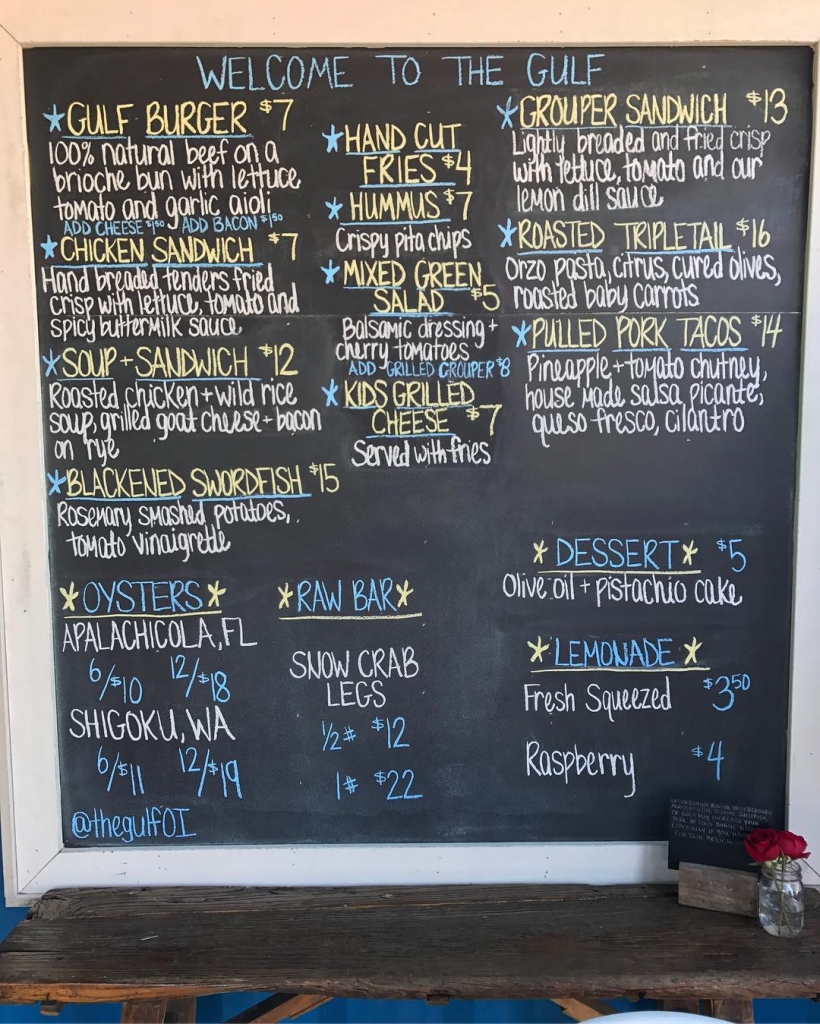 WELCOME TO THE GULF
*GULF BURGER $7
100% natural beef on a
brioche bun with lettuce
tomato and garlic aioli
ADD CHEESE $1.50 ADD BACON $1.50
*CHICKEN SANDWICH $7
Hand breaded tenders fried
crisp with lettuce, tomato and
spicy buttermilk sauce
*SOUP + SANDWICH $12
Roasted chicken + wild rice
soup, grilled goat cheese + bacon
on rye
*BLACKENED SWORDFISH $15
Rosemary smashed potatoes,
tomato vinaigrette
*HAND CUT
FRIES $4
*HUMMUS $7
Crispy pita chips
*MIXED GREEN
SALAD $5
Balsamic dressing +
cherry tomatoes
ADD GRILLED GROUPER $8
*KIDS GRILLED
CHEESE $7
Served with fries
*GROUPER SANDWICH $13
Lightly breaded and fried crisp
with lettuce, tomato and our
lemon dill sauce
*ROASTED TRIPLETAIL $16
Orzo pasta, citrus, cured olives,
roasted baby carrots
*PULLED PORK TACOS $14
Pineapple + tomato chutney,
house made salsa picante,
queso fresco, cilantro
*OYSTERS*
APALACHICOLA, FL
6/$10 12/$18
SHIGOKU, WA
6/$11 12/$19
@thegulfOI
*RAW BAR*
SNOW CRAB
LEGS
1/2# $12
1# $22
*DESSERT* $5
Olive oil + pistachio cake
*LEMONADE*
Fresh Squeezed $3.50
Raspberry $4